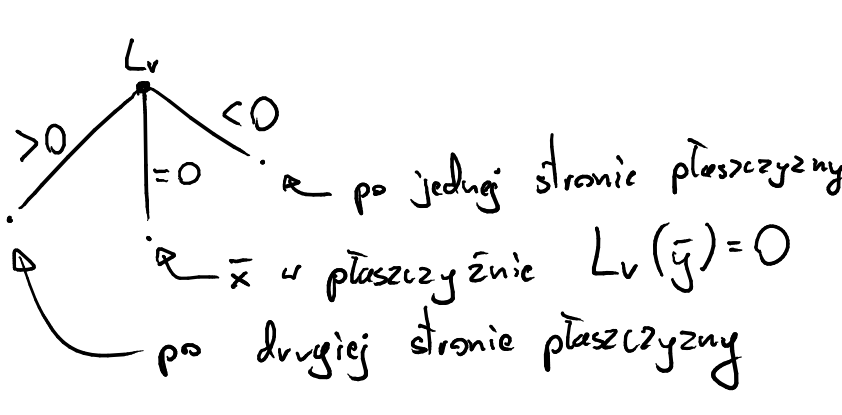 Lᵥ
>0 <0
=0
po jednej stronie płaszczyzny
x̄ w płaszczyźnie Lᵥ(ȳ)=0
po drugiej stronie płaszczyzny